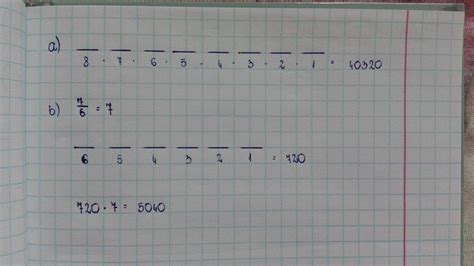 a) 8 · 7 · 6 · 5 · 4 · 3 · 2 · 1 = 40320
b) 7/6 = 7
6 5 4 3 2 1 = 720
720 · 7 = 5040